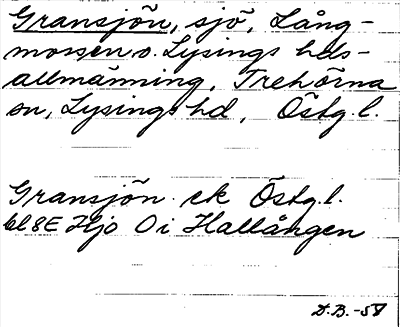 Gransjön, sjö, Lång-
mossen o. Lysings hds-
allmänning, Trehörna
sn, Lysings hd, Östg. l.
Gransjön ek Östg. l.
bl 8E Hjo O i Hallången
D.B.-5